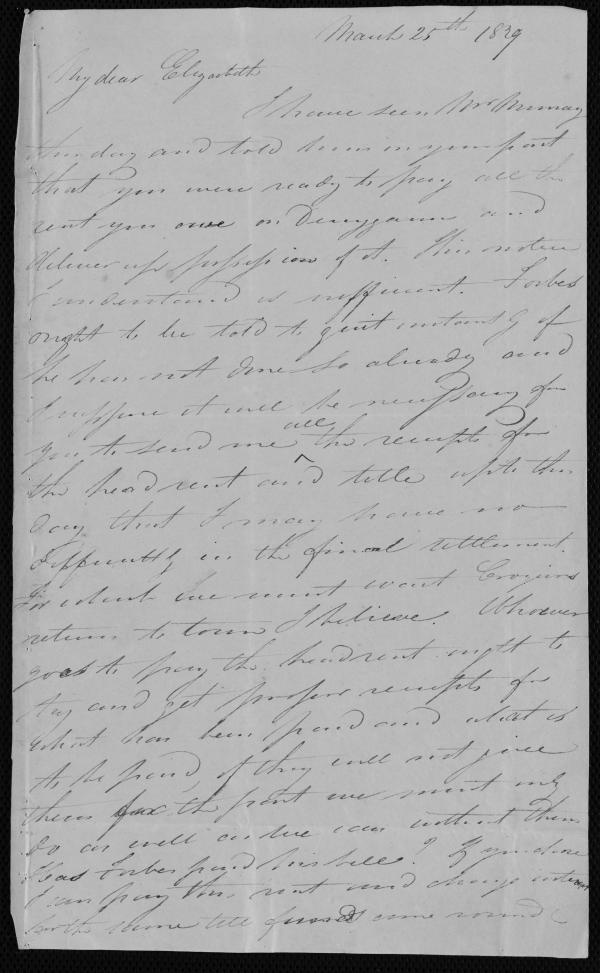 March 25th 1839
My dear Elizabeth
I have seen Mr Murray
this day and told him on your part
that you were ready to pay all the
rent you owe on and
deliver up possession of it. This notice
I understand is sufficient. Forbes
ought to be told to quit instantly if
he has not done so already and
I suppose it will be necessary for
you to send me all the receipts for
the head rent and tithe up to this
day that I may have no
difficulty in the final settlement.
For which we must want
return to town I believe. Whoever
goes to pay the head rent ought to
try and get proper receipts for
what has been paid and what is
to be paid, if they will not give
them for the past we must only
do as well as we can without them
Has Forbes paid his bill? If you choose
I can pay this rent and charge interest
for the same till funds come round